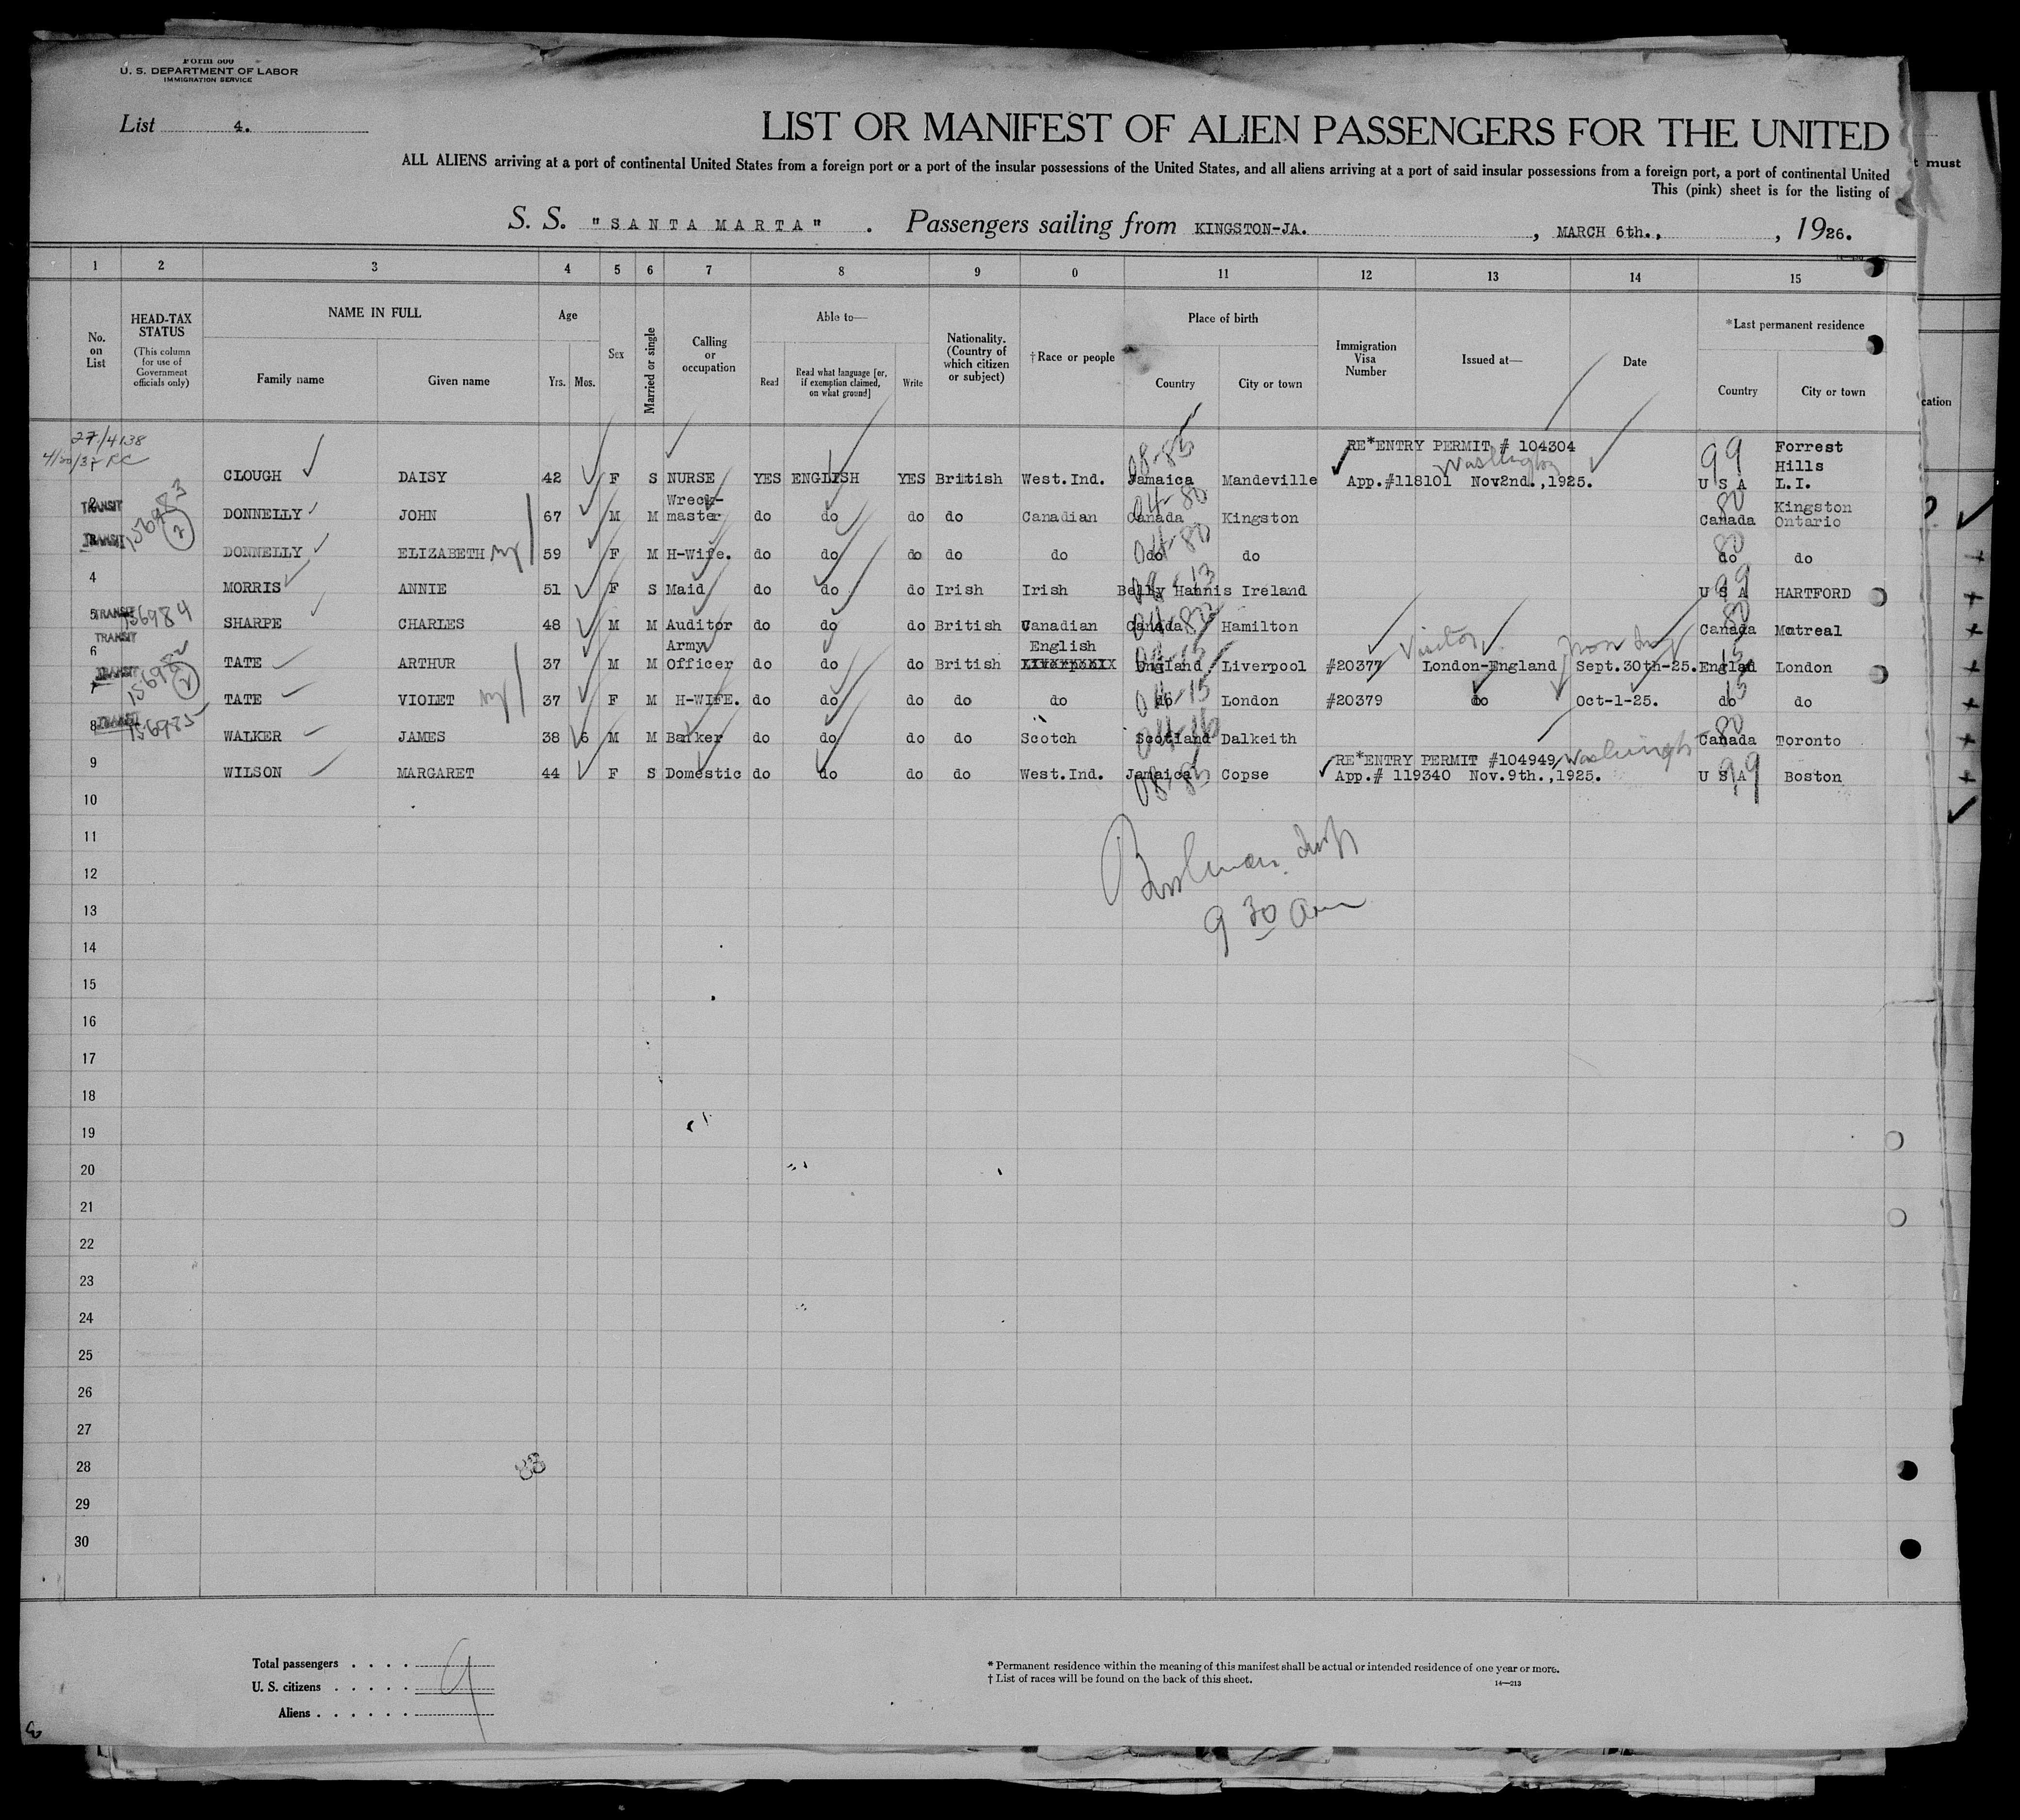 Form 500
U. S. DEPARTMENT OF LABOR
IMMIGRATION SERVICE
List 4.
LIST OR MANIFEST OF ALIEN PASSENGERS FOR THE UNITED
ALL ALIENS arriving at a port of continental United States from a foreign port or a port of the insular possessions of the United States, and all aliens arriving at a port of said insular possessions from a foreign port, a port of continental United
This (pink) sheet is for the listing of
t must
S. S. "SANTA MARTA" . Passengers sailing from KINGSTON-JA. , MARCH 6th., , 1926.
1 2 3 4 5 6 7 8 9 0 11 12 13 14 15
No. on List
HEAD-TAX STATUS
(This column for use of Government officials only)
NAME IN FULL
Family name Given name
Age
Yrs. Mos.
Sex
Married or single
Calling or occupation
Able to—
Read
Read what language [or, if exemption claimed, on what ground]
Write
Nationality. (Country of which citizen or subject)
†Race or people
Place of birth
Country City or town
Immigration Visa Number
Issued at—
Date
*Last permanent residence
Country City or town
cation
27/4138
4/20/37 RC
RE*ENTRY PERMIT # 104304 99 Forrest
08-85 Washington Hills
CLOUGH DAISY 42 F S NURSE YES ENGLISH YES British West.Ind. Jamaica Mandeville App.#118101 Nov2nd.,1925. U S A L.I.
2 TRANSIT 156983 (2) DONNELLY JOHN 67 M M Wreck-master do do do do Canadian Canada 04-80 Kingston Canada 80 Kingston Ontario
TRANSIT DONNELLY ELIZABETH 59 F M H-Wife. do do do do do do 04-80 do do 80 do
4 MORRIS ANNIE 51 F S Maid do do do Irish Irish Belly Hannis Ireland U S A 99 HARTFORD
5 TRANSIT 156984 SHARPE CHARLES 48 M M Auditor do do do British Canadian Canada Hamilton Canada 80 Motreal
TRANSIT
6 156982 (2) TATE ARTHUR 37 M M Army Officer do do do British English England Liverpool #20377 Visitor London-England Sept.30th-25. Englad 15 London
TRANSIT TATE VIOLET 37 F M H-WIFE. do do do do do do 04-15 London #20379 do Oct-1-25. do 15 do
8 TRANSIT 156985 WALKER JAMES 38 6 M M Banker do do do do Scotch Scotland 04-16 Dalkeith Canada 80 Toronto
RE*ENTRY PERMIT #104949 Washington
9 WILSON MARGARET 44 F S Domestic do do do do West.Ind. Jamaica 08-85 Copse App.# 119340 Nov.9th.,1925. U S A 99 Boston
10
11
12
13
9 30 am
14
15
16
17
18
19
20
21
22
23
24
25
26
27
28
29
30
Total passengers . . . . 9
U. S. citizens . . . . .
Aliens . . . . . .
* Permanent residence within the meaning of this manifest shall be actual or intended residence of one year or more.
† List of races will be found on the back of this sheet.
14—213